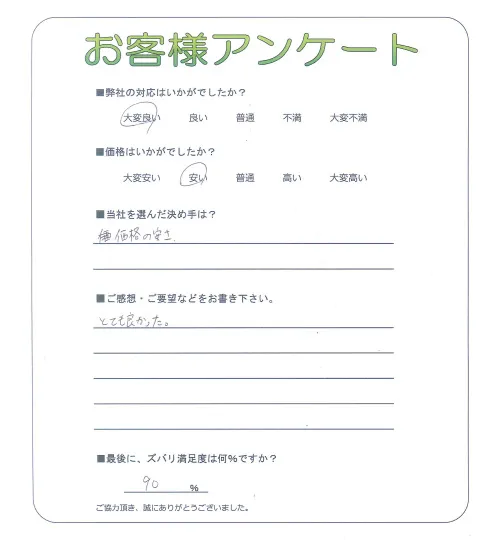 お客様アンケート
■弊社の対応はいかがでしたか？
大変良い 良い 普通 不満 大変不満
■価格はいかがでしたか？
大変安い 安い 普通 高い 大変高い
■当社を選んだ決め手は？
価格の安さ
■ご感想・ご要望などをお書き下さい。
とても良かった。
■最後に、ズバリ満足度は何％ですか？
90 %
ご協力頂き、誠にありがとうございました。